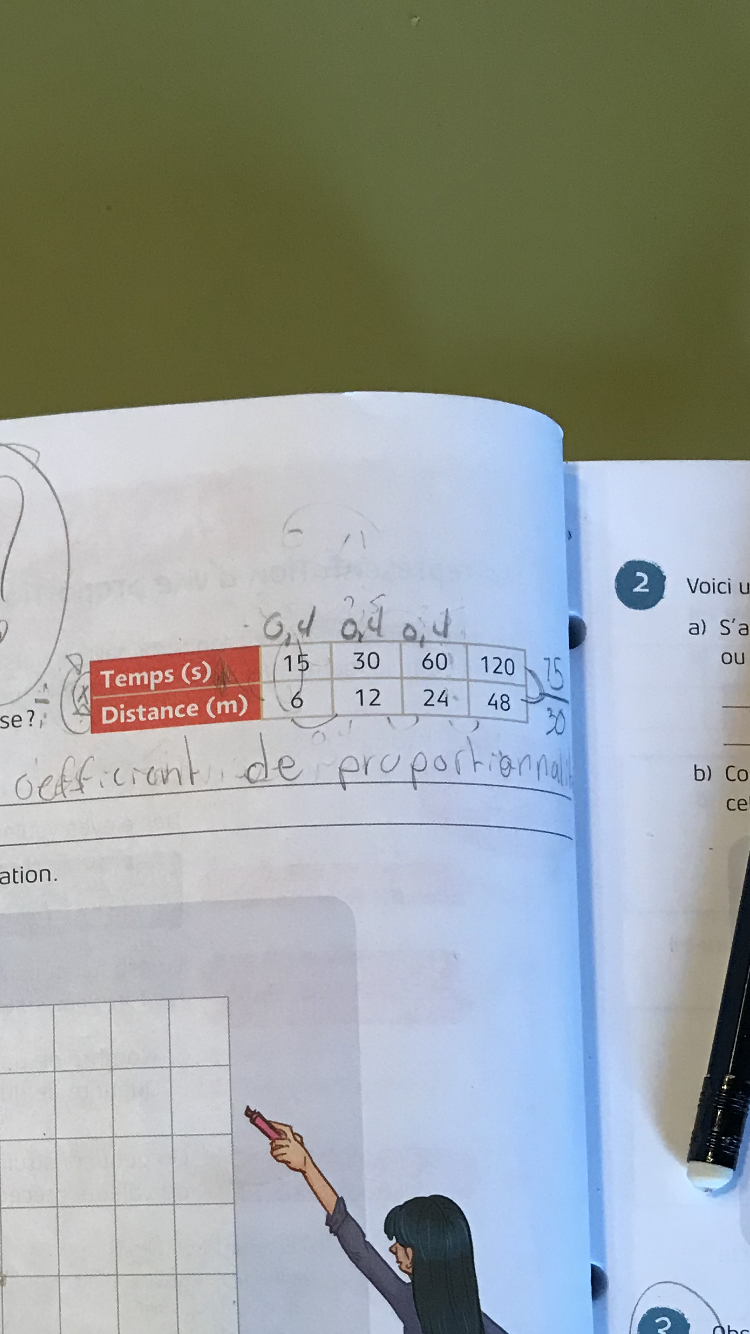 0,4 0,4 0,4
Temps (s) 15 30 60 120
Distance (m) 6 12 24 48
75
30
se?
oefficient de proportionnal
ation.
2 Voici u
a) S'a
ou
b) Co
ce
3